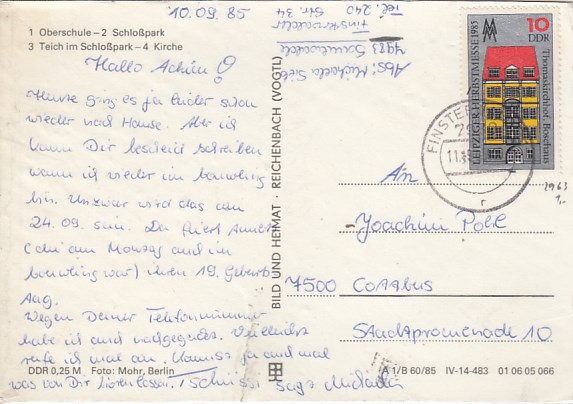 10.09.85
1 Oberschule – 2 Schloßpark
3 Teich im Schloßpark – 4 Kirche
Hallo Achim!
Heute ging es ja leider schon
wieder nach Hause. Aber ich
kann Dir bescheid schreiben
wann ich wieder im bowling
bin. Und zwar wird das am
24.09. sein. Da feiert Annett
(die am Montag auch im
bowling war) ihren 19. Geburts
tag.
Wegen Deiner Telefonnummer
habe ich auch nachgeguckt. Vielleicht
rufe ich mal an. Kannst ja auch mal
was von Dir hören lassen. Tschüssi sagt Michaela
DDR 0,25 M Foto: Mohr, Berlin
BILD UND HEIMAT · REICHENBACH (VOGTL)
Abs.: Michaela
7983 Sonnewalde
Finsterwalder
Str. 34
Tel. 240
MM
10
DDR
LEIPZIGER HERBSTMESSE 1985
Thomaskirchhof, Bosehaus
FINSTER
79
11.
r
2963
1,-
An
Joachim Pohl
7500 Cottbus
Stadtpromenade 10
A 1/B 60/85 IV-14-483 01 06 05 066